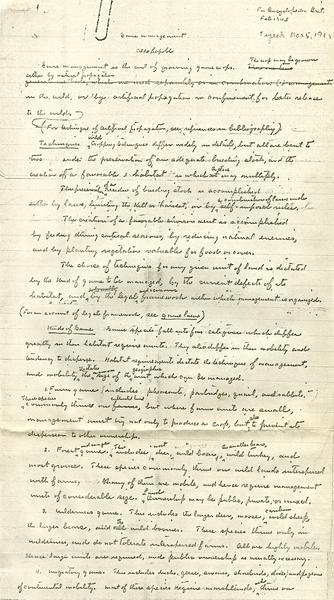 For Encyclopedia Brit.
Feb 1945
Typed Mar 8, 1945
Game management
Game management is the art of growing game crops. The crop may be grown
either by natural propagation
in the wild, or by artificial propagation in confinement, for later release
to the wilds.
(For techniques of artificial propagation, see references in bibliography)
Techniques wild Cropping techniques differ widely in detail, but all are bent to
two ends: the preservation of an adequate breeding stock, and the
creation of a favorable habitat in which it may multiply.
The preservation of breeding stock is accomplished
either by laws limiting the kill or harvest, or by self-imposed rules, or by combination of laws and rules
The creation of a favorable environment is accomplished
by feeding during critical seasons, by reducing natural enemies,
and by planting vegetation valuable for food or cover.
The choice of techniques for any given unit of land is dictated
by the kind of game to be managed, by the current defects of its
habitat, and by the legal framework within which management is organized.
(For an account of legal frameworks, see game laws)
Kinds of Game Game species fall into four categories which differ
greatly in their habitat requirements. They also differ in their mobility and
tendency to disperse. Habitat requirements dictate the techniques of management,
and mobility dictates the size of the geographic unit which can be managed.
1. Farm game includes pheasant, partridges, quail, and rabbits.
These species commonly thrive on farms, but where farm units are small,
management must be not only to produce a crop, but to prevent its
dispersion to other ownerships.
2. Forest and range game. This includes deer, elk, wild boar, the smaller bears, wild turkey, and
most grouse. These species commonly thrive on wild lands interspersed
with farms. Many of them are mobile, and hence require management
units of considerable size. Land ownership may be public, private, or mixed.
3. Wilderness game. This includes the larger deer, moose, caribou, wild sheep,
the larger bears, and the wild bovines. These species thrive only in
wilderness, and do not tolerate interspersed farms. All are highly mobile.
Hence large units are required, and public ownership is usually necessary.
4. Migratory game. This includes ducks, geese, swans, shorebirds, doves, and pigeons
of continental mobility. Most of these species require marshlands, thrive on